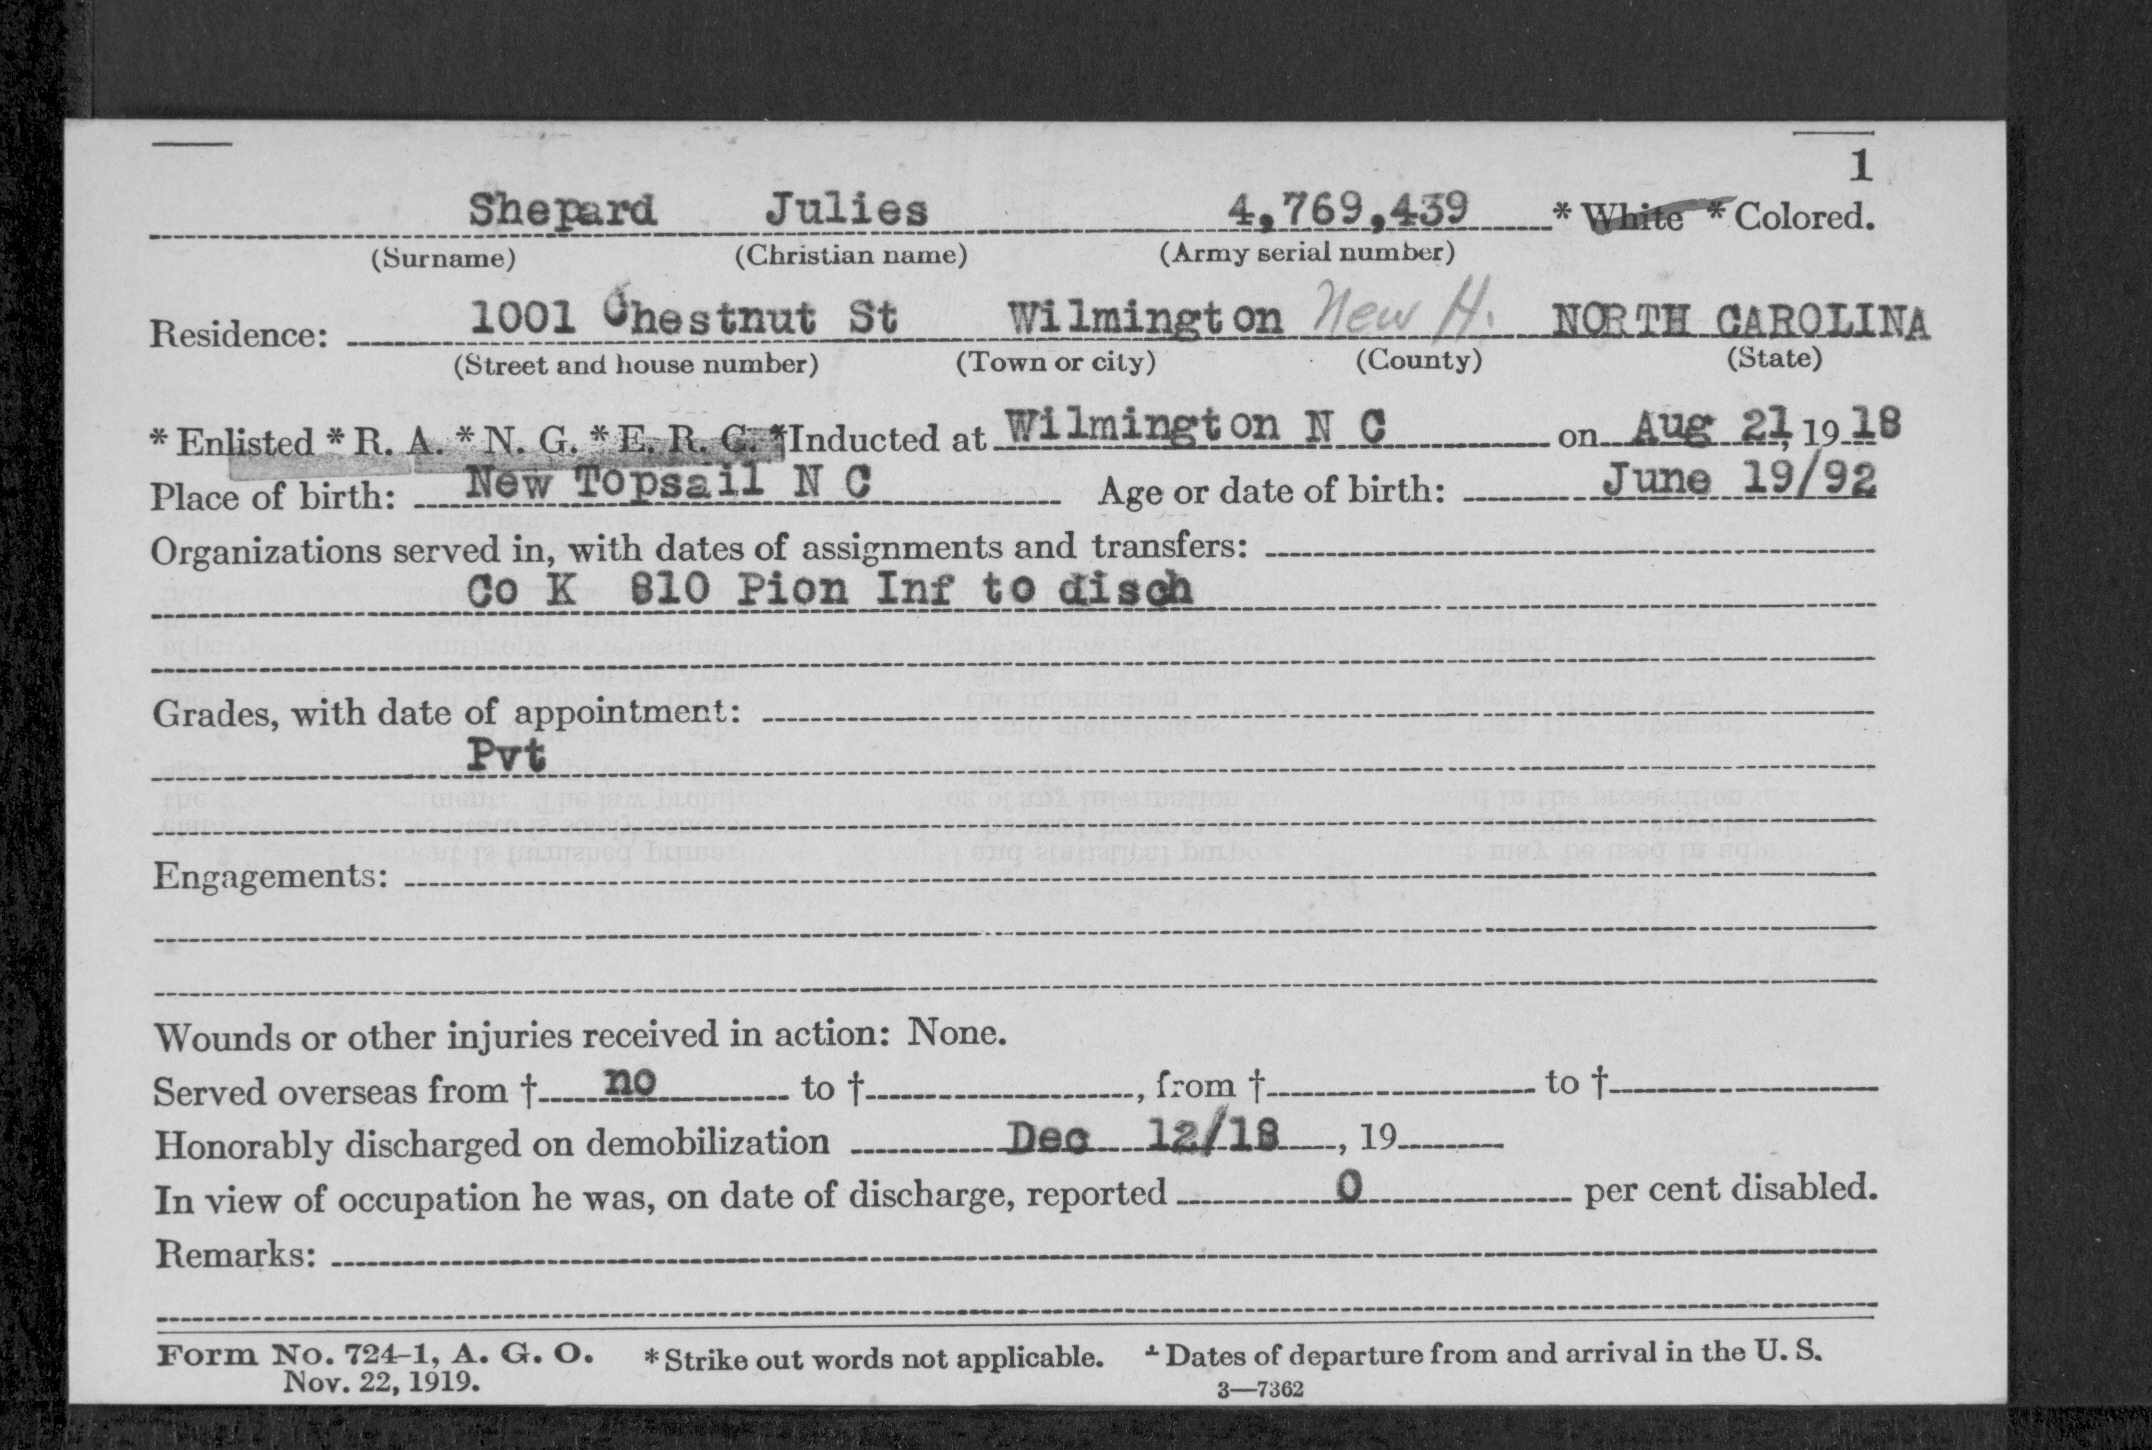 1
Shepard Julies 4,769,439 * White * Colored.
(Surname) (Christian name) (Army serial number)
Residence: 1001 Chestnut St Wilmington New H. NORTH CAROLINA
(Street and house number) (Town or city) (County) (State)
* Enlisted * R. A. * N. G. * E. R. C. * Inducted at Wilmington N C on Aug 21, 1918
Place of birth: New Topsail N C Age or date of birth: June 19/92
Organizations served in, with dates of assignments and transfers:
Co K 810 Pion Inf to disch
Grades, with date of appointment:
Pvt
Engagements:
Wounds or other injuries received in action: None.
Served overseas from † no to †, from † to †
Honorably discharged on demobilization Dec 12/18, 19
In view of occupation he was, on date of discharge, reported 0 per cent disabled.
Remarks:
Form No. 724-1, A. G. O. * Strike out words not applicable. † Dates of departure from and arrival in the U. S.
Nov. 22, 1919. 3—7362